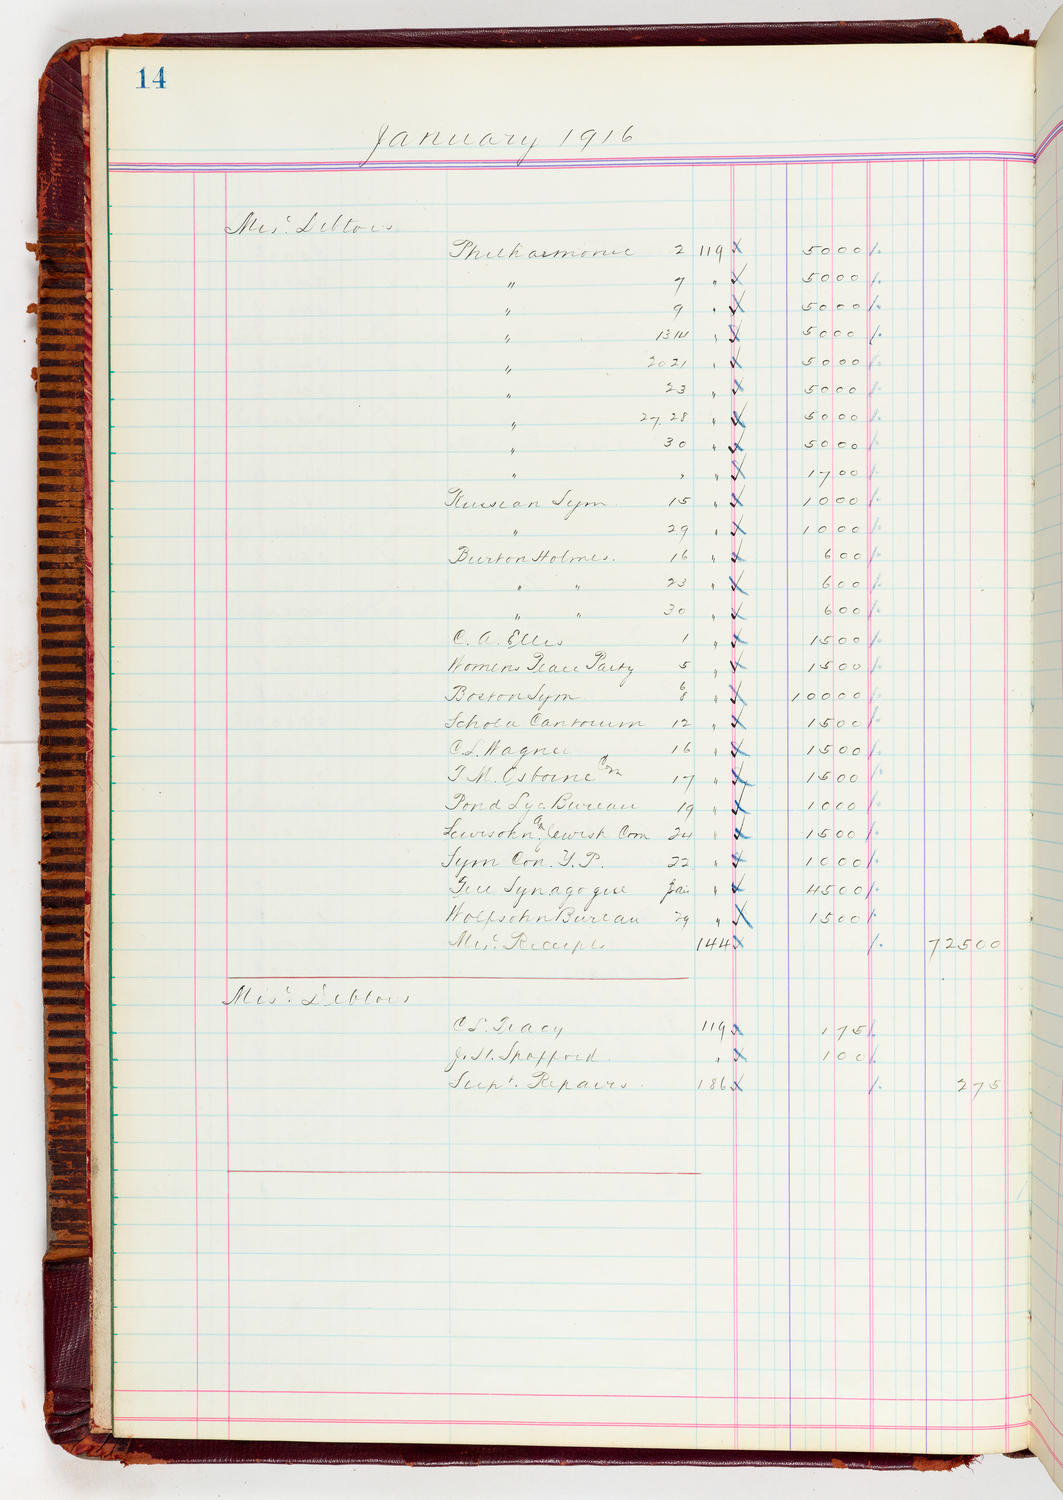 14
January 1916
Misc. Debtors
Philharmonic 2 119 5000
" 7 " 5000
" 9 " 5000
" 13 14 " 5000
" 20 21 " 5000
" 23 " 5000
" 27. 28 " 5000
" 30 " 5000
" " " 1700
Russian Sym 15 " 1000
" 29 " 1000
Burton Holmes. 16 " 600
" " 23 " 600
" " 30 " 600
C. A. Ellis 1 " 1500
Womens Peace Party 5 " 1500
Boston Sym. 6 8 " 10000
Schola Cantorum 12 " 1500
C. L. Wagner 16 " 1500
T. M. Osborne Com 17 " 1500
Pond Lyc. Bureau 19 " 1000
Lewisohn Am. Jewish Com 24 " 1500
Sym Con. Y. P. 22 " 1000
Free Synagogue Jan " 4500
Wolfsohn Bureau 29 " 1500
Misc. Receipts 144 72500
Misc. Debtors
C. L. Tracy 119 175
J. H. Spafford " 100
Supt. Repairs 186 275